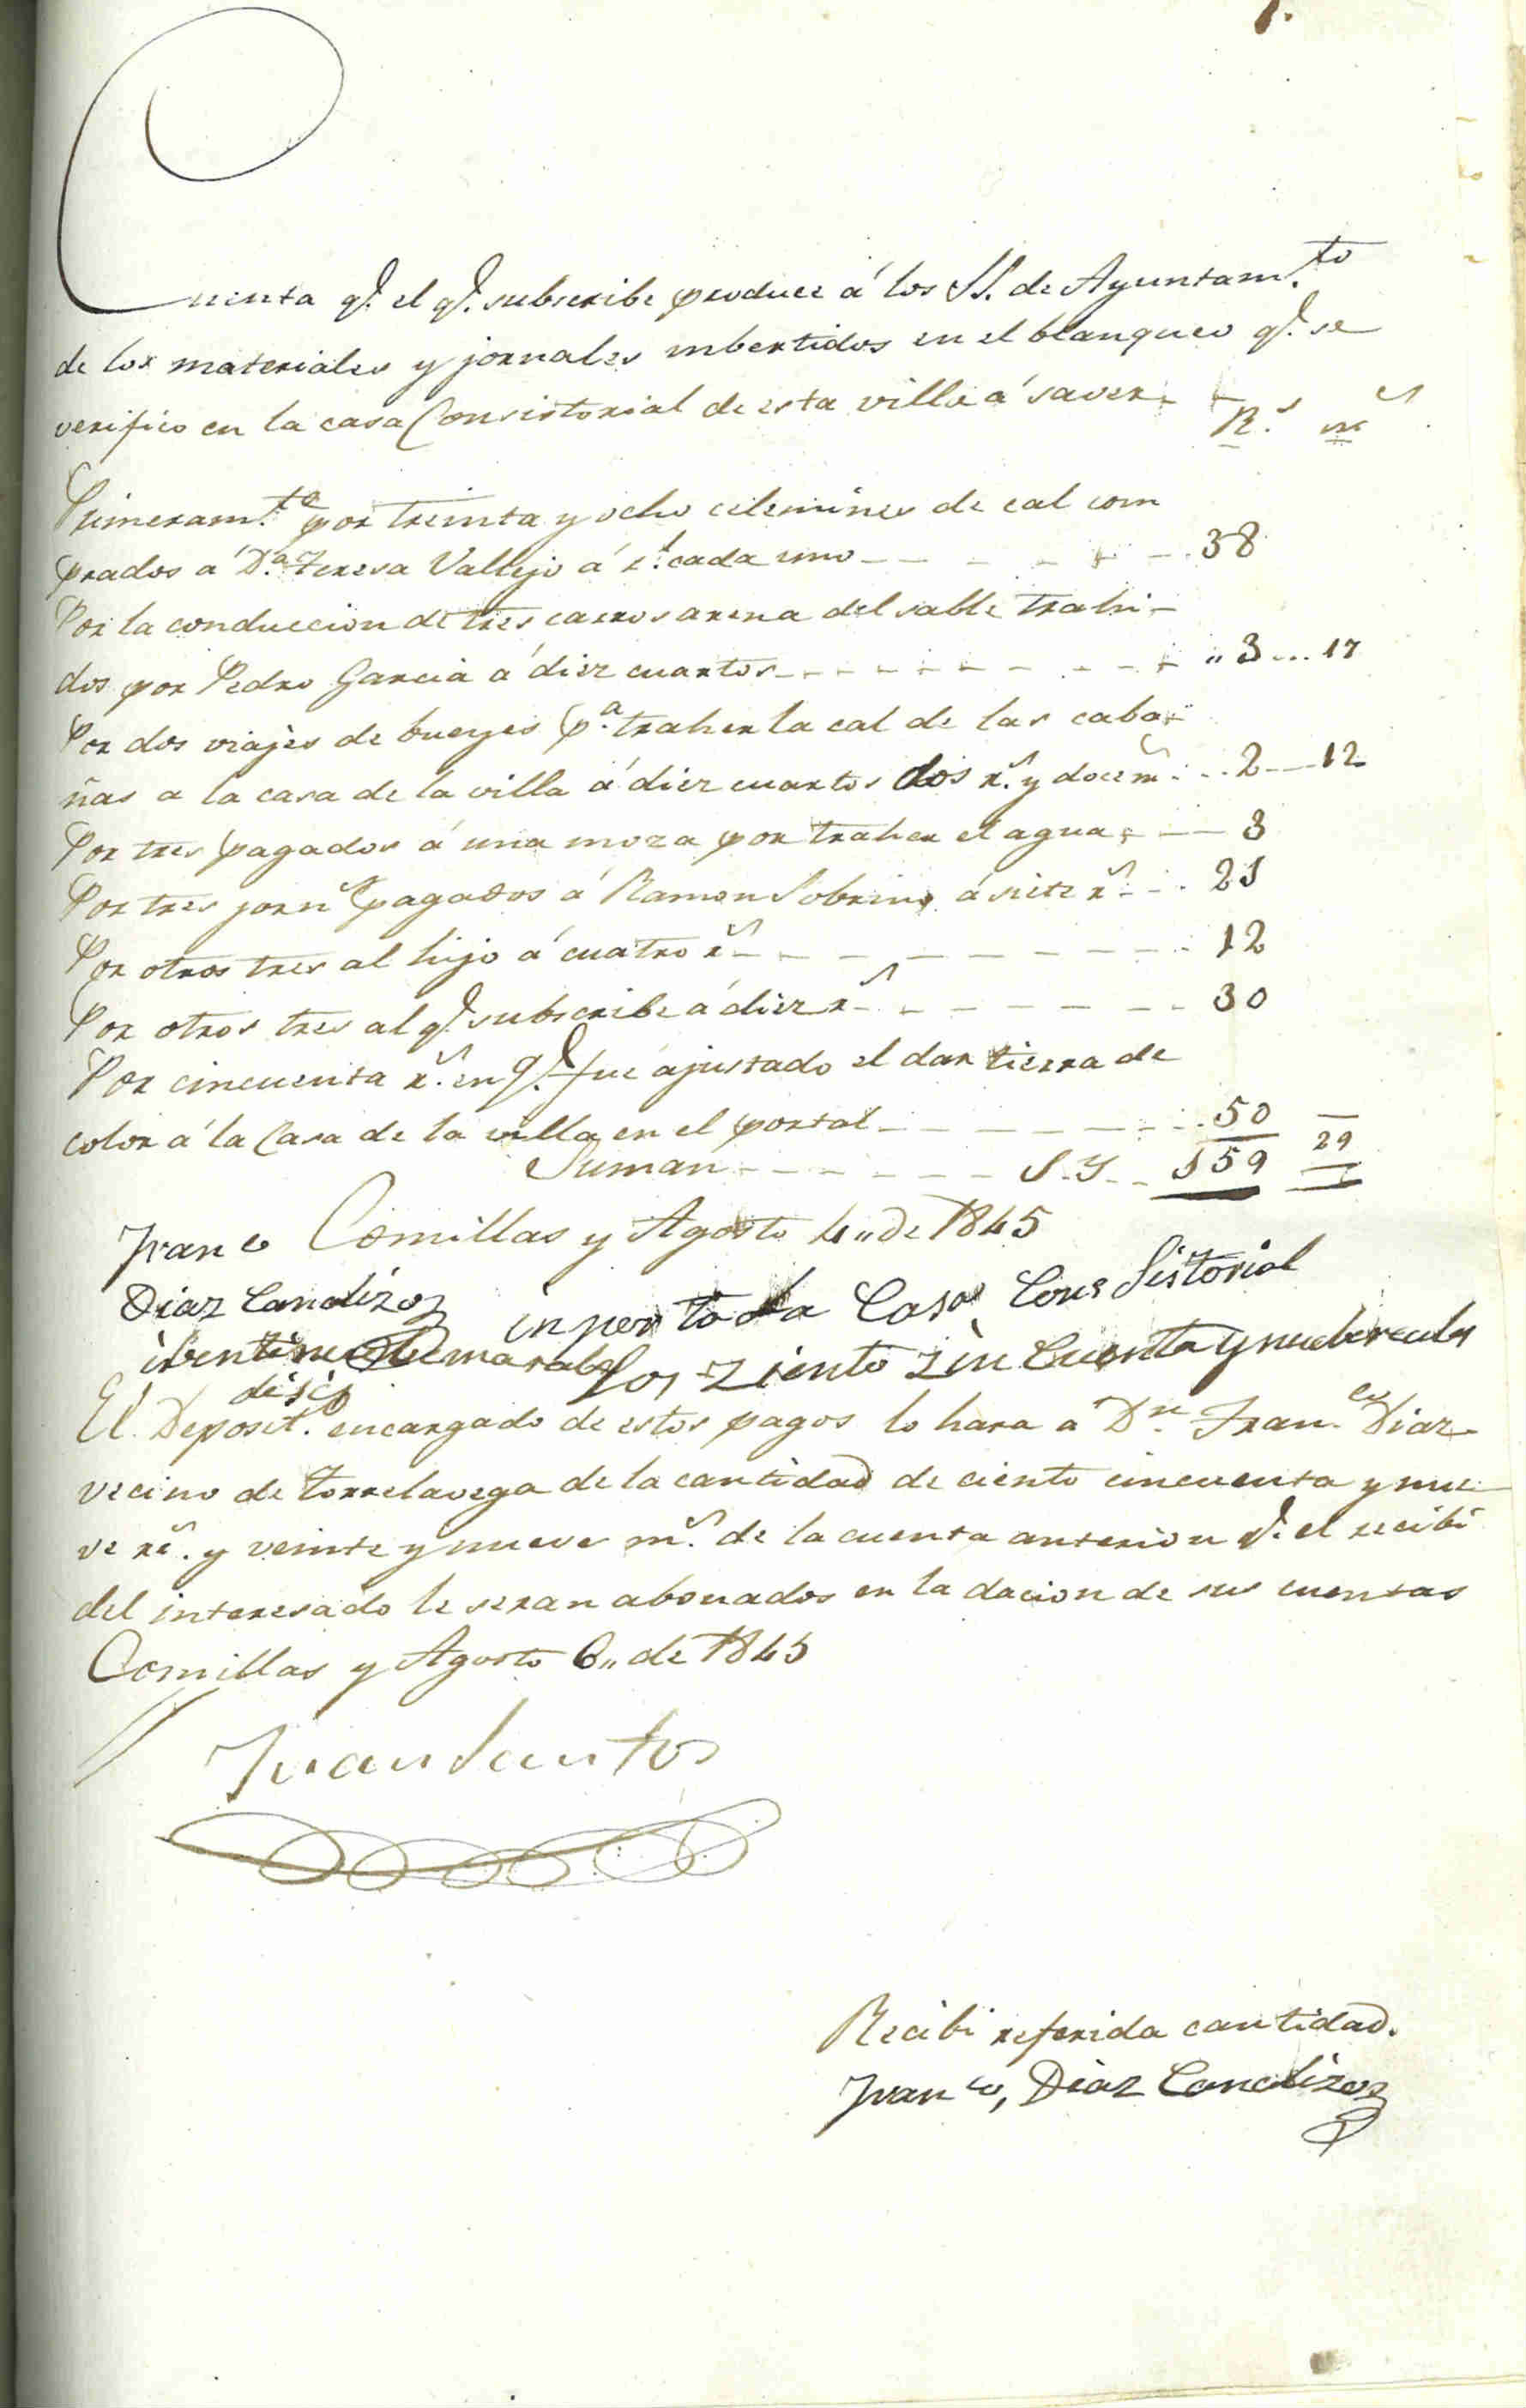 1.
Cuenta q.e el q.e subscribe produce á los SS. de Ayuntam.to
de los materiales y jornales imbertidos en el blanqueo q.e se
verifico en la casa Consistorial de esta villa á saver. R.s m.s
Primeram.te por treinta y ocho celemines de cal com
prados a D.a Teresa Vallejo á r.l cada uno 38
Por la conduccion de tres carros arena del sable trahi-
dos por Pedro Garcia á diez cuartos " 3 ... 17
Por dos viajes de bueyes p.a traher la cal de las caba-
ñas a la casa de la villa á diez cuartos dos r.s y doce m.s 2 12
Por tres pagados á una moza por traher el agua 3
Por tres jorn.s pagados á Ramon Sobrino á siete r.s 21
Por otros tres al hijo á cuatro r.s 12
Por otros tres al q.e subscribe á diez r.s 30
Por cincuenta r.s en q.e fue ajustado el dar tierra de
color á la Casa de la villa en el portal 50
Suman S.Y. 159 29
Comillas y Agosto 4,, de 1845
Fran co
Diaz Canalizoz inporto la Casa Cons Sistorial
ibentinuebe marabe los ziento zin Cuenta y nueb reales
disis
El Deposit.o encargado de estos pagos lo hara a D.n Fran.co Diaz
vecino de Torrelavega de la cantidad de ciento cincuenta y nue-
ve r.s y veinte y nueve m.s de la cuenta anterior q.e el recibi
del interesado le seran abonados en la dacion de sus cuentas
Comillas y Agosto 6,, de 1845
Juan Santos
Recibi referida cantidad.
Fran co, Diaz Canalizoz